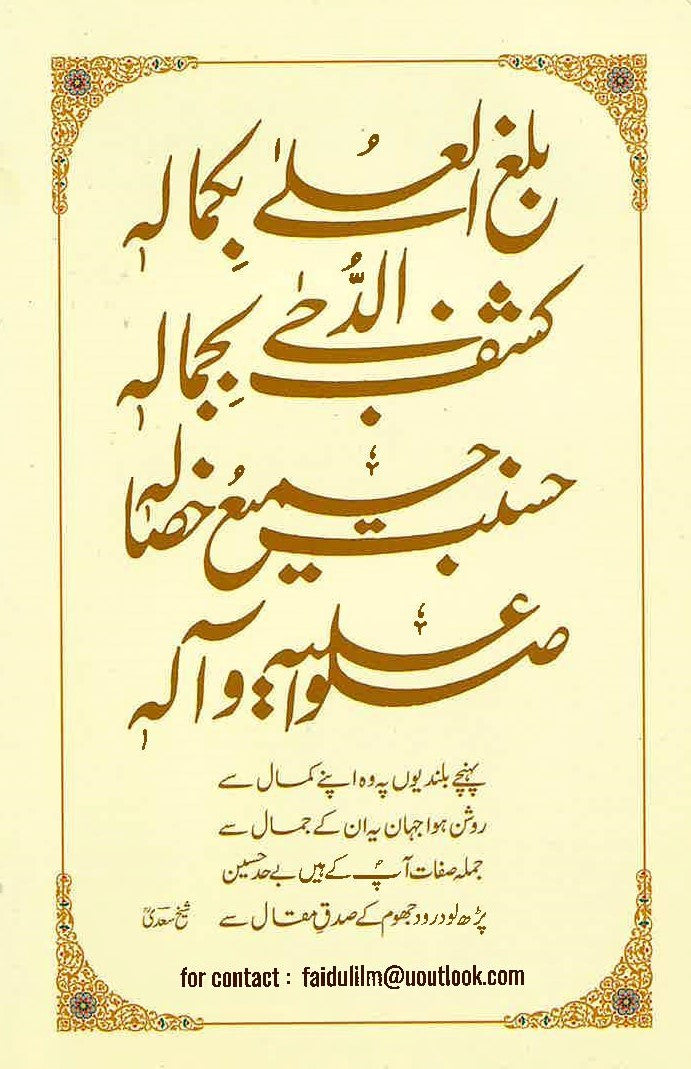 بلغ العُلےٰ بِکمالہٖ
کشف الدُّجےٰ بِجمالہٖ
حسنت جمیعُ خصالہٖ
صلوا علیہ وآلہٖ
پہنچے بلندیوں پہ وہ اپنے کمال سے
روشن ہوا جہان یہ ان کے جمال سے
جملہ صفات آپؐ کے ہیں بے حد حسین
پڑھ لو درود جھوم کے صدقِ مقال سے
شیخ سعدیؒ
for contact : faidulilm@uoutlook.com